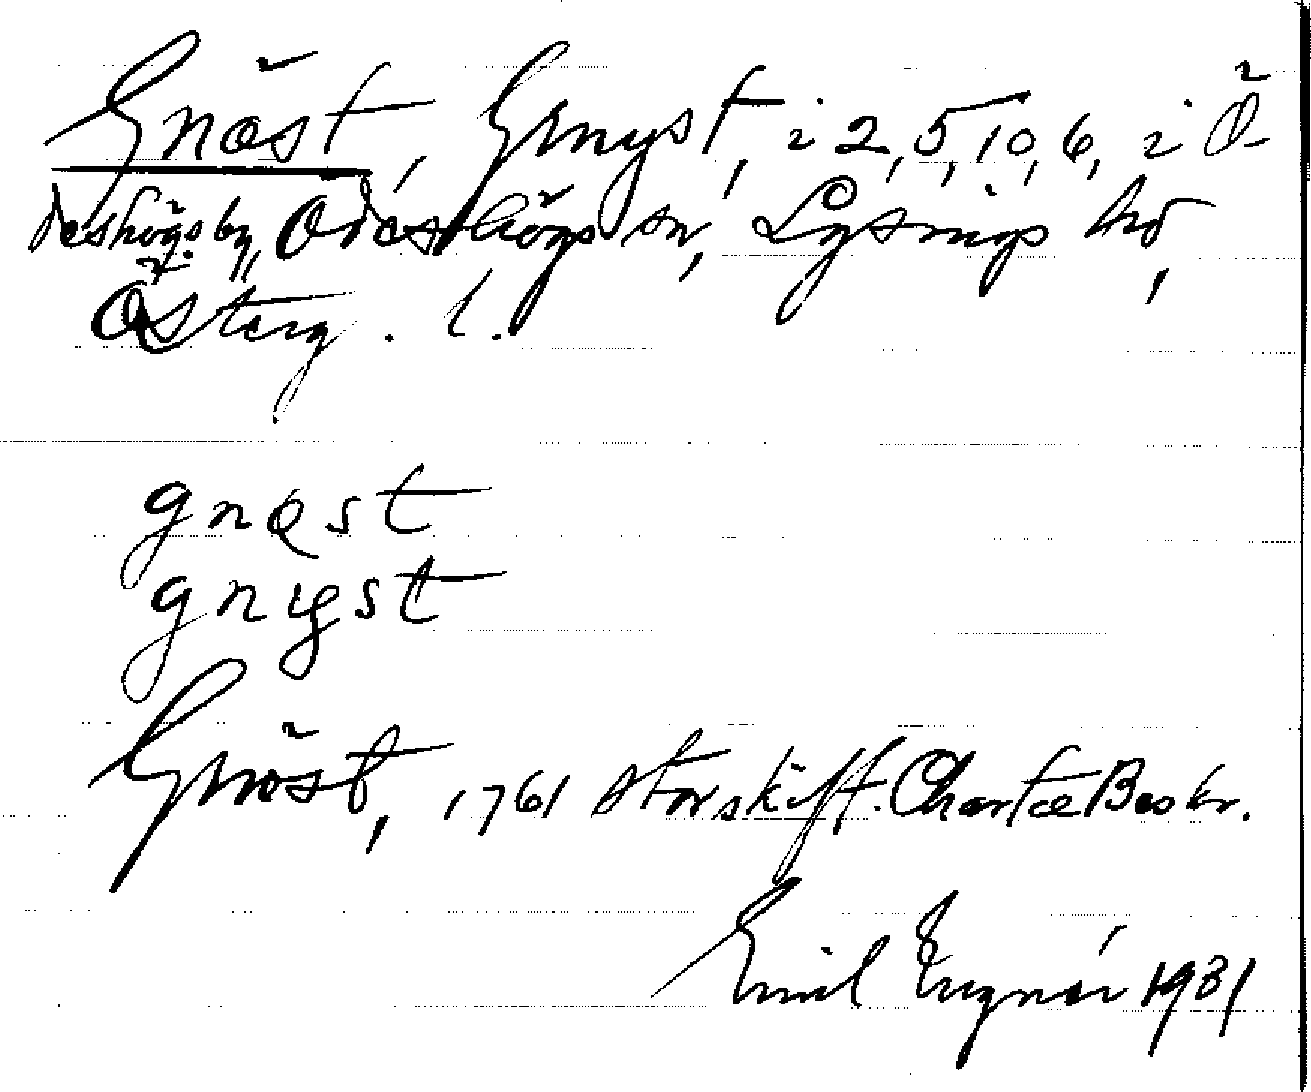 Gnöst, Gnyst, i 2, 5, 10, 6, i Ö-
deshögs by, Ödeshögs sn, Lysings hd,
Österg. l.
gnøst
gnyst
Gnöst, 1761 Storskift. Charte Beskr.
Emil 1931